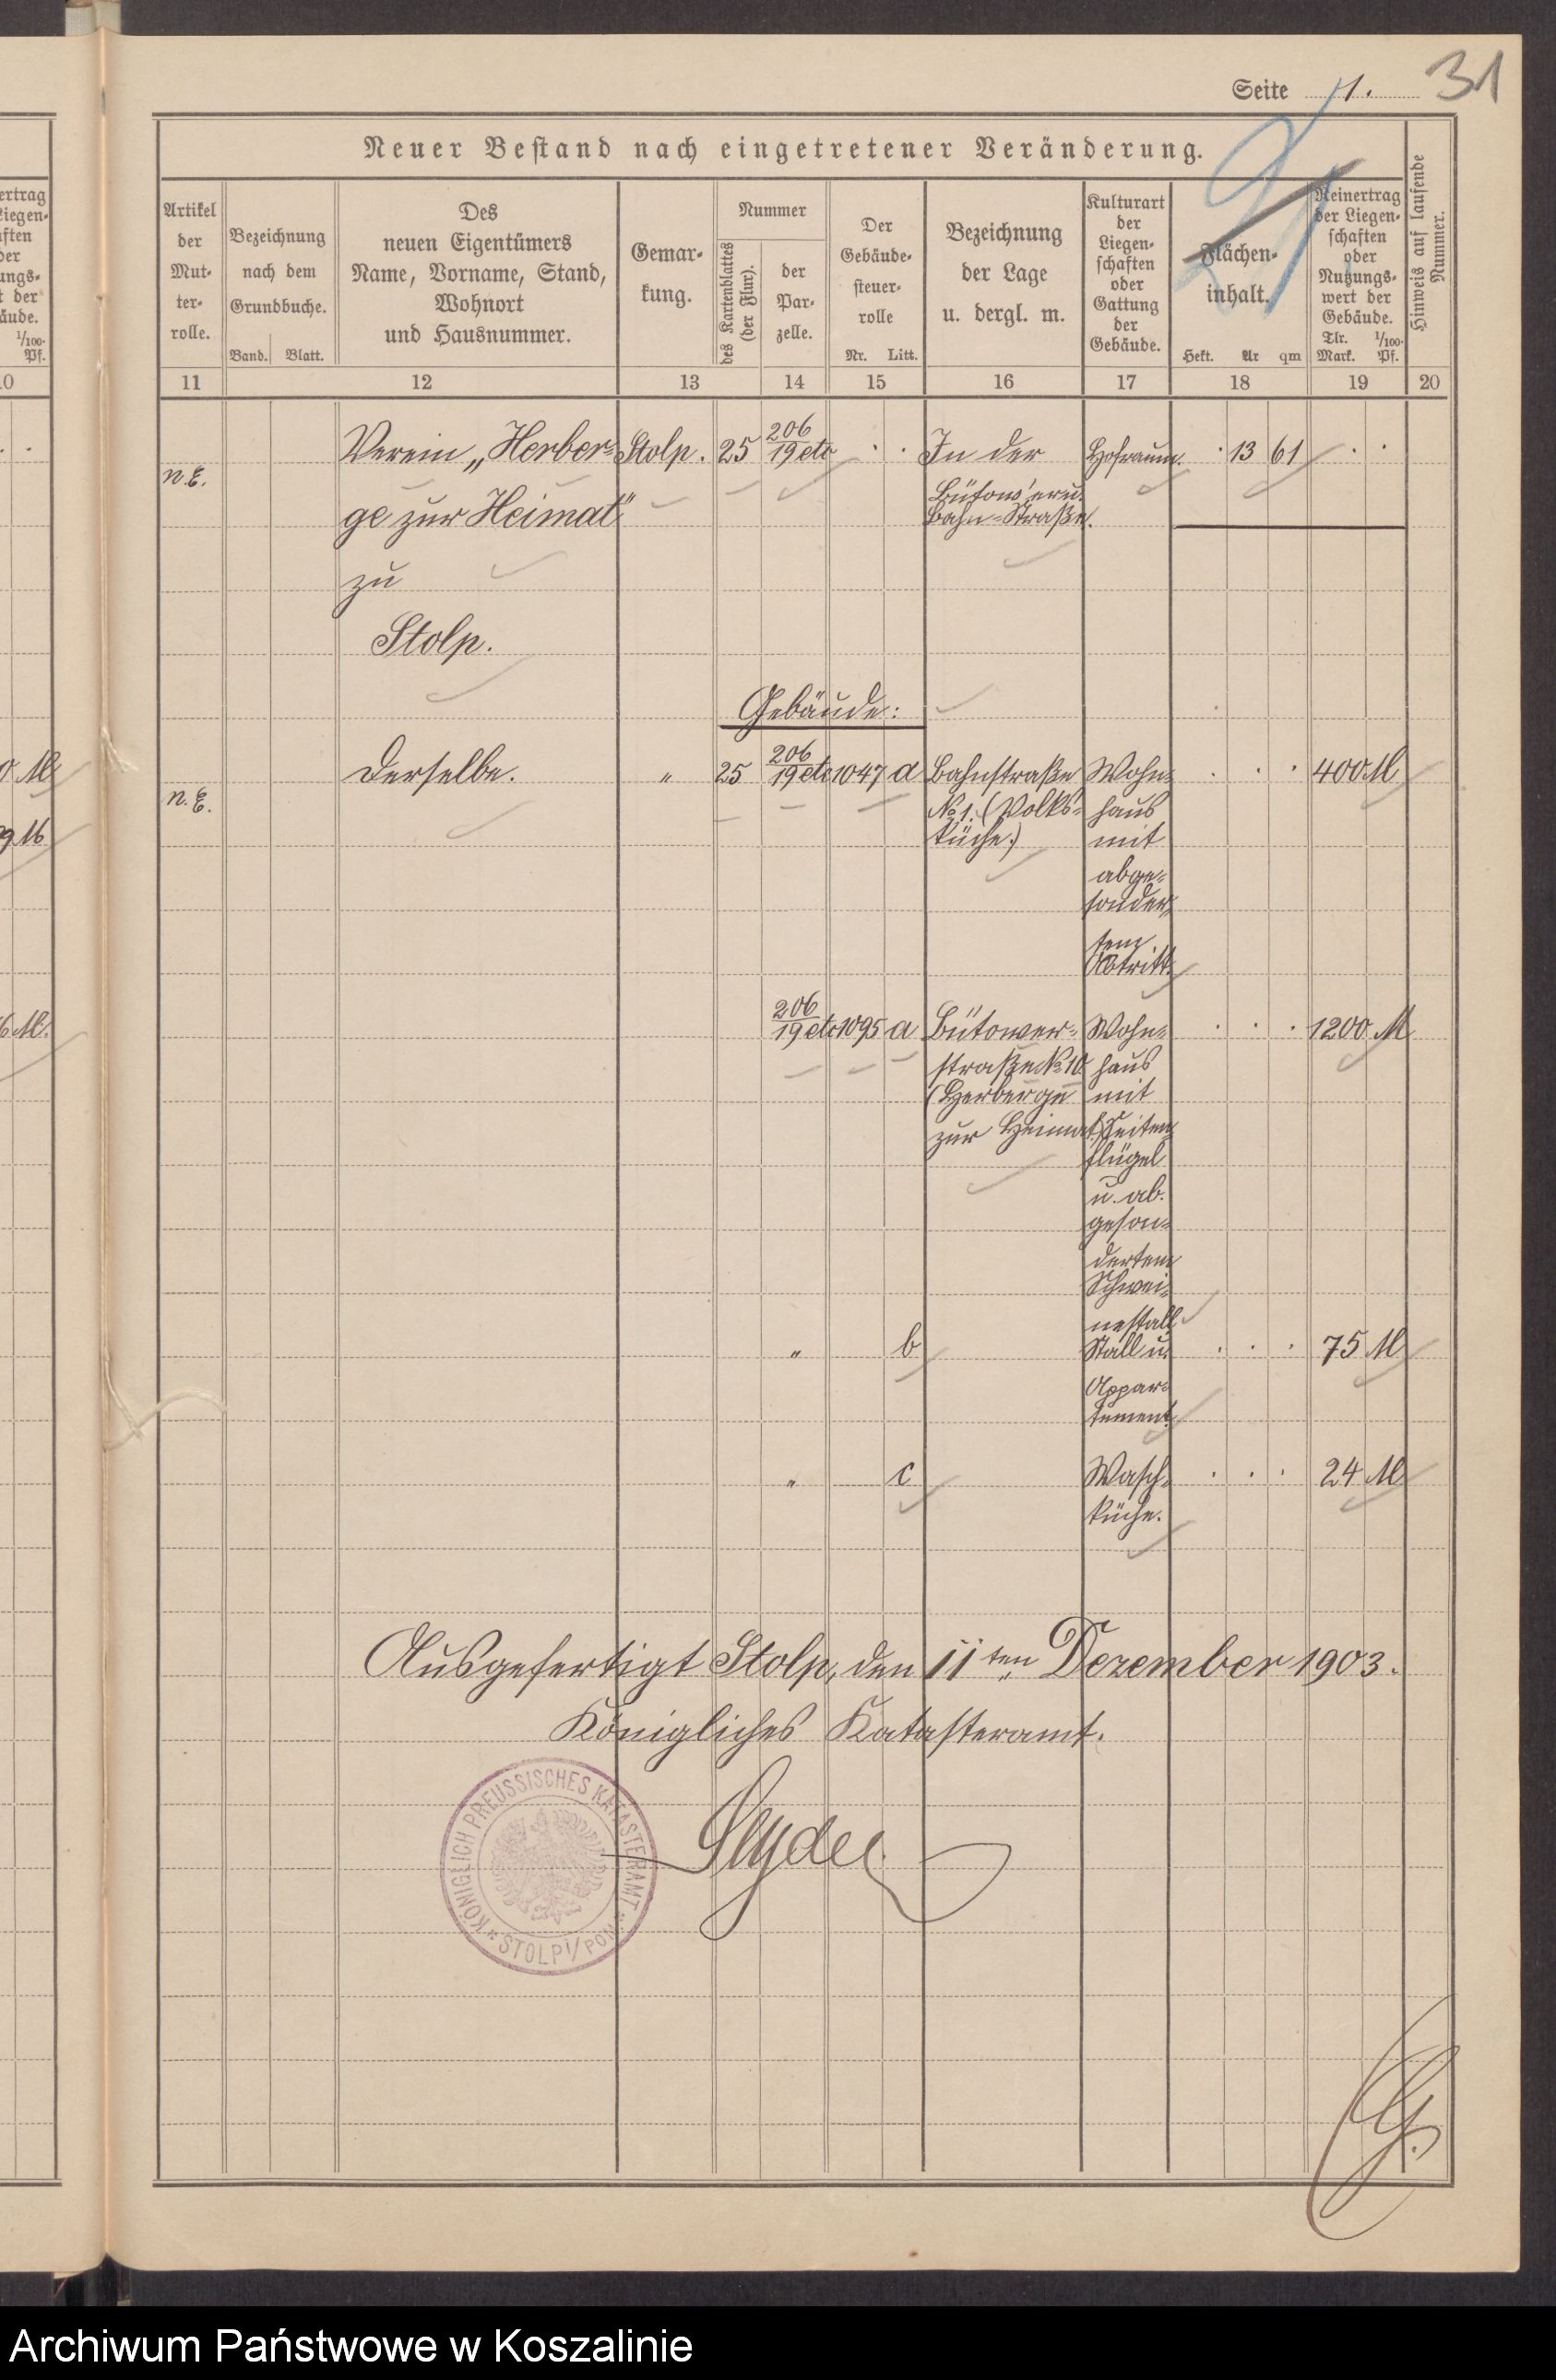 Seite 1.
31
Neuer Bestand nach eingetretener Veränderung.
Artikel der Mutterrolle.
Bezeichnung nach dem Grundbuche.
Band. Blatt.
Des neuen Eigentümers Name, Vorname, Stand, Wohnort und Hausnummer.
Gemarkung.
Nummer
des Kartenblattes (der Flur).
der Parzelle.
Der Gebäudesteuerrolle
Nr. Litt.
Bezeichnung der Lage u. dergl. m.
Kulturart der Liegenschaften oder Gattung der Gebäude.
Flächeninhalt.
Hekt. Ar qm
Reinertrag der Liegenschaften oder Nutzungswert der Gebäude.
Tlr. 1/100.
Mark. Pf.
Hinweis auf laufende Nummer.
11 12 13 14 15 16 17 18 19 20
n. E. Verein „Herber= Stolp. 25 206/19 etc · · In der Hofraum. · 13 61 · ·
ge zur Heimat" Bütow'er u.
Bahn=Straße.
zu
Stolp.
Gebäude:
n. E. Derselbe. " 25 206/19 etc 1047 a Bahnstraße Wohn= · · · 400 M
No 1. (Volks= haus
küche.) mit
abge=
sonder=
tem
Abtritt.
206/19 etc 1095 a Bütower= Wohn= · · · 1200 M
straße No 10 haus
(Herberge mit
zur Heimat) Seiten=
flügel
u. ab.
geson=
dertem
Schwei=
nestall
" b Stall u. · · · 75 M
Appar=
tement.
" c Wasch= · · · 24 M
küche.
Ausgefertigt Stolp, den 11ten Dezember 1903.
Königliches Katasteramt.
KÖNIGLICH PREUSSISCHES KATASTERAMT
* STOLP i/POM *
Archiwum Państwowe w Koszalinie